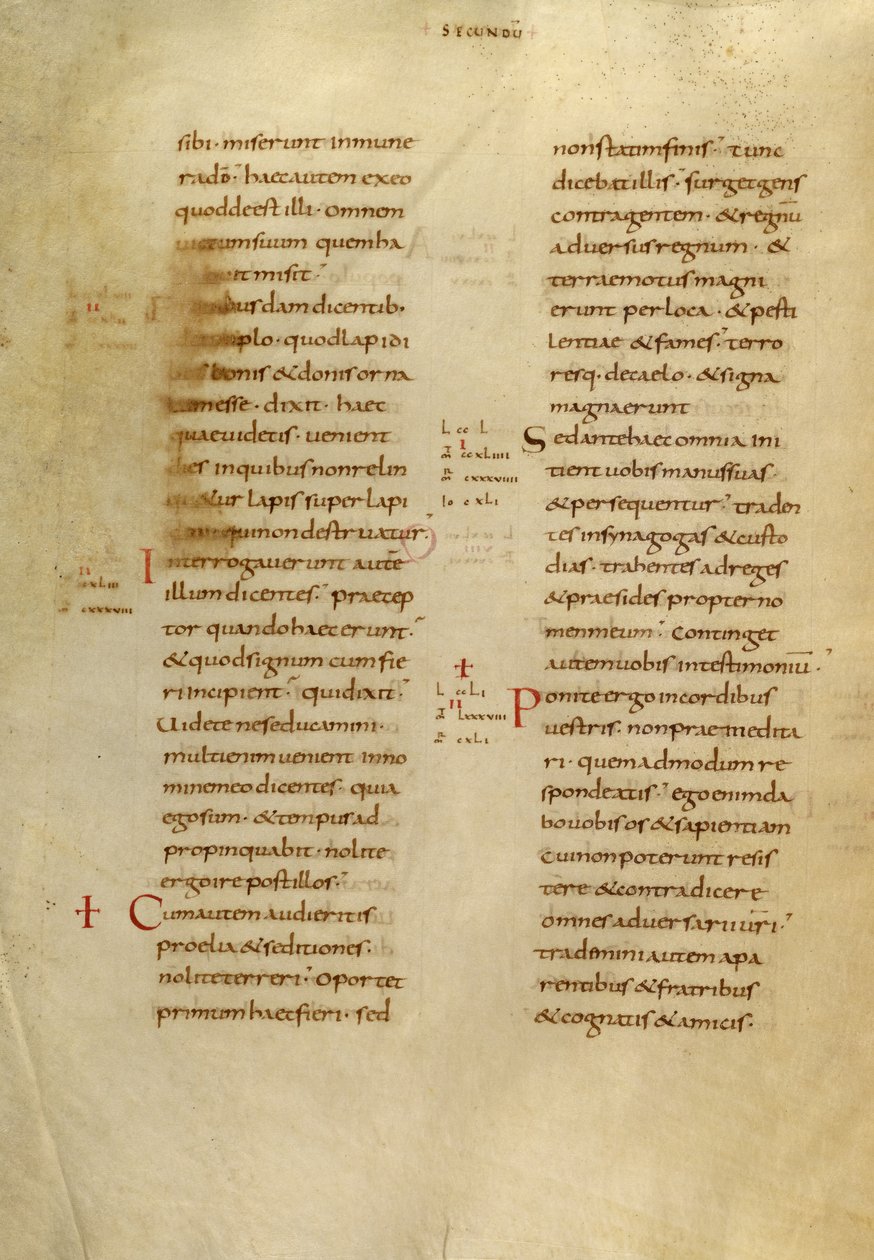 + SECUNDŪ +
sibi · miserunt in mune
radō · haec autem ex eo
quod deest illi · omnem
suum quem ha
misit ·
dam dicentib·
plo · quod lapidi
bonis & donis orna
esse · dixit · haec
quae videtis · venient
dies in quibus non relin
&ur lapis super lapi
qui non destruatur·
II
Interrogaverunt autē
cxLIII
illum dicentes · praecep
cxxxviii
tor quando haec erunt ·
& quod signum cum fie
ri incipient · qui dixit ·
Uidete ne seducamini ·
multi enim venient in no
mine meo dicentes · quia
ego sum · & tempus ad
propinquabit · nolite
ergo ire post illos ·
+ Cum autem audieritis
proelia & seditiones ·
nolite terreri · Oportet
primum haec fieri · sed
non statim finis · tunc
dicebat illis · surget gens
contra gentem · & regnū
adversus regnum · &
terrae motus magni
erunt per loca · & pesti
lentiae & fames · terro
resq· de caelo · & signa
magna erunt
L cc L
I
m ccxLiiii
m cxxxviiii
Io cxLi
Sed ante haec omnia ini
tient vobis manus suas ·
& persequentur · traden
tes in synagogas & custo
dias · trahentes ad reges
& praesides propter no
men meum · Continget
autem vobis in testimoniū ·
+
L ccLi
II
m Lxxxviii
m cxLi
Ponite ergo in cordibus
vestris · non praemedita
ri · quemadmodum re
spondeatis · ego enim da
bo vobis os & sapientiam
cui non poterunt resis
tere & contradicere
omnes adversarii uri ·
trademini autem a pa
rentibus & fratribus
& cognatis & amicis ·